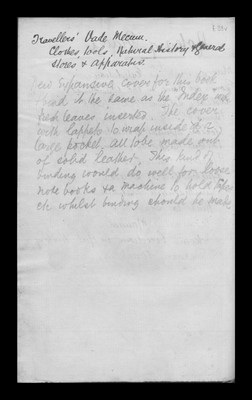 Travellers' Vade Mecum.
Clothes, tools, Natural History & General
Stores & Apparatus.
Expansive cover for this book
to be same as the "Index" with
leaves inserted. The cover
with lappels to wrap inside &
large pocket, all to be made out
of solid leather. This kind of
binding would do well for loose
note books & a machine to hold
whilst binding should be made